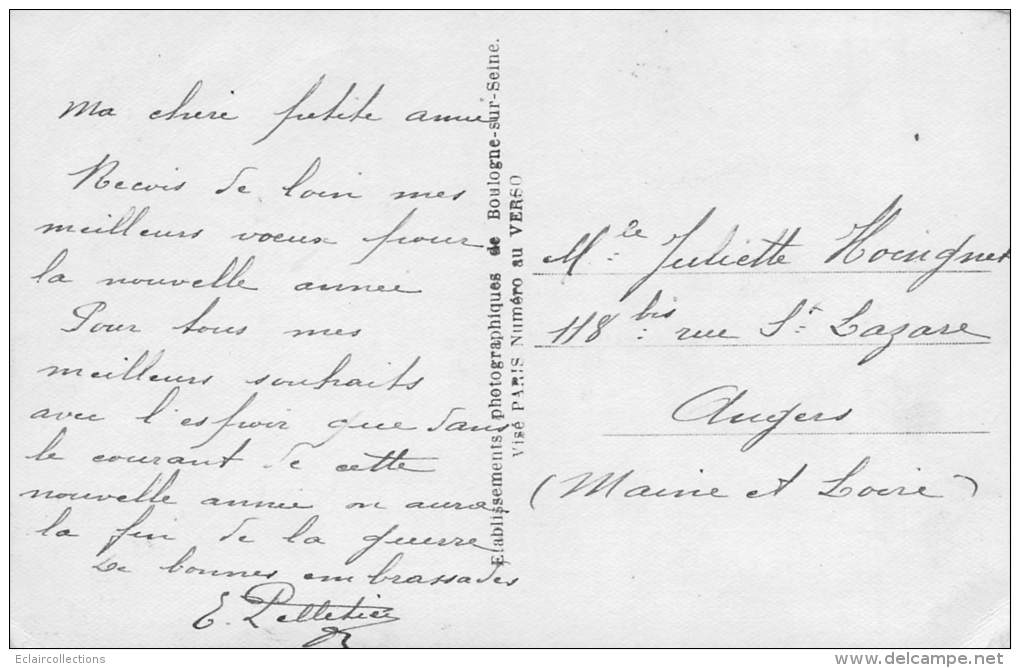 Ma chère petite amie
Recois de loin mes
meilleurs voeux pour
la nouvelle année
Pour tous mes
meilleurs souhaits
avec l'espoir que dans
le courant de cette
nouvelle année on aura
la fin de la guerre
De bonnes embrassades
E. Pelletier
Etablissements photographiques de Boulogne-sur-Seine.
Visé PARIS Numéro au VERSO
Mlle Juliette Hoingnet
118 bis rue St Lazare
Angers
(Maine et Loire)
Eclaircollections
www.delcampe.net